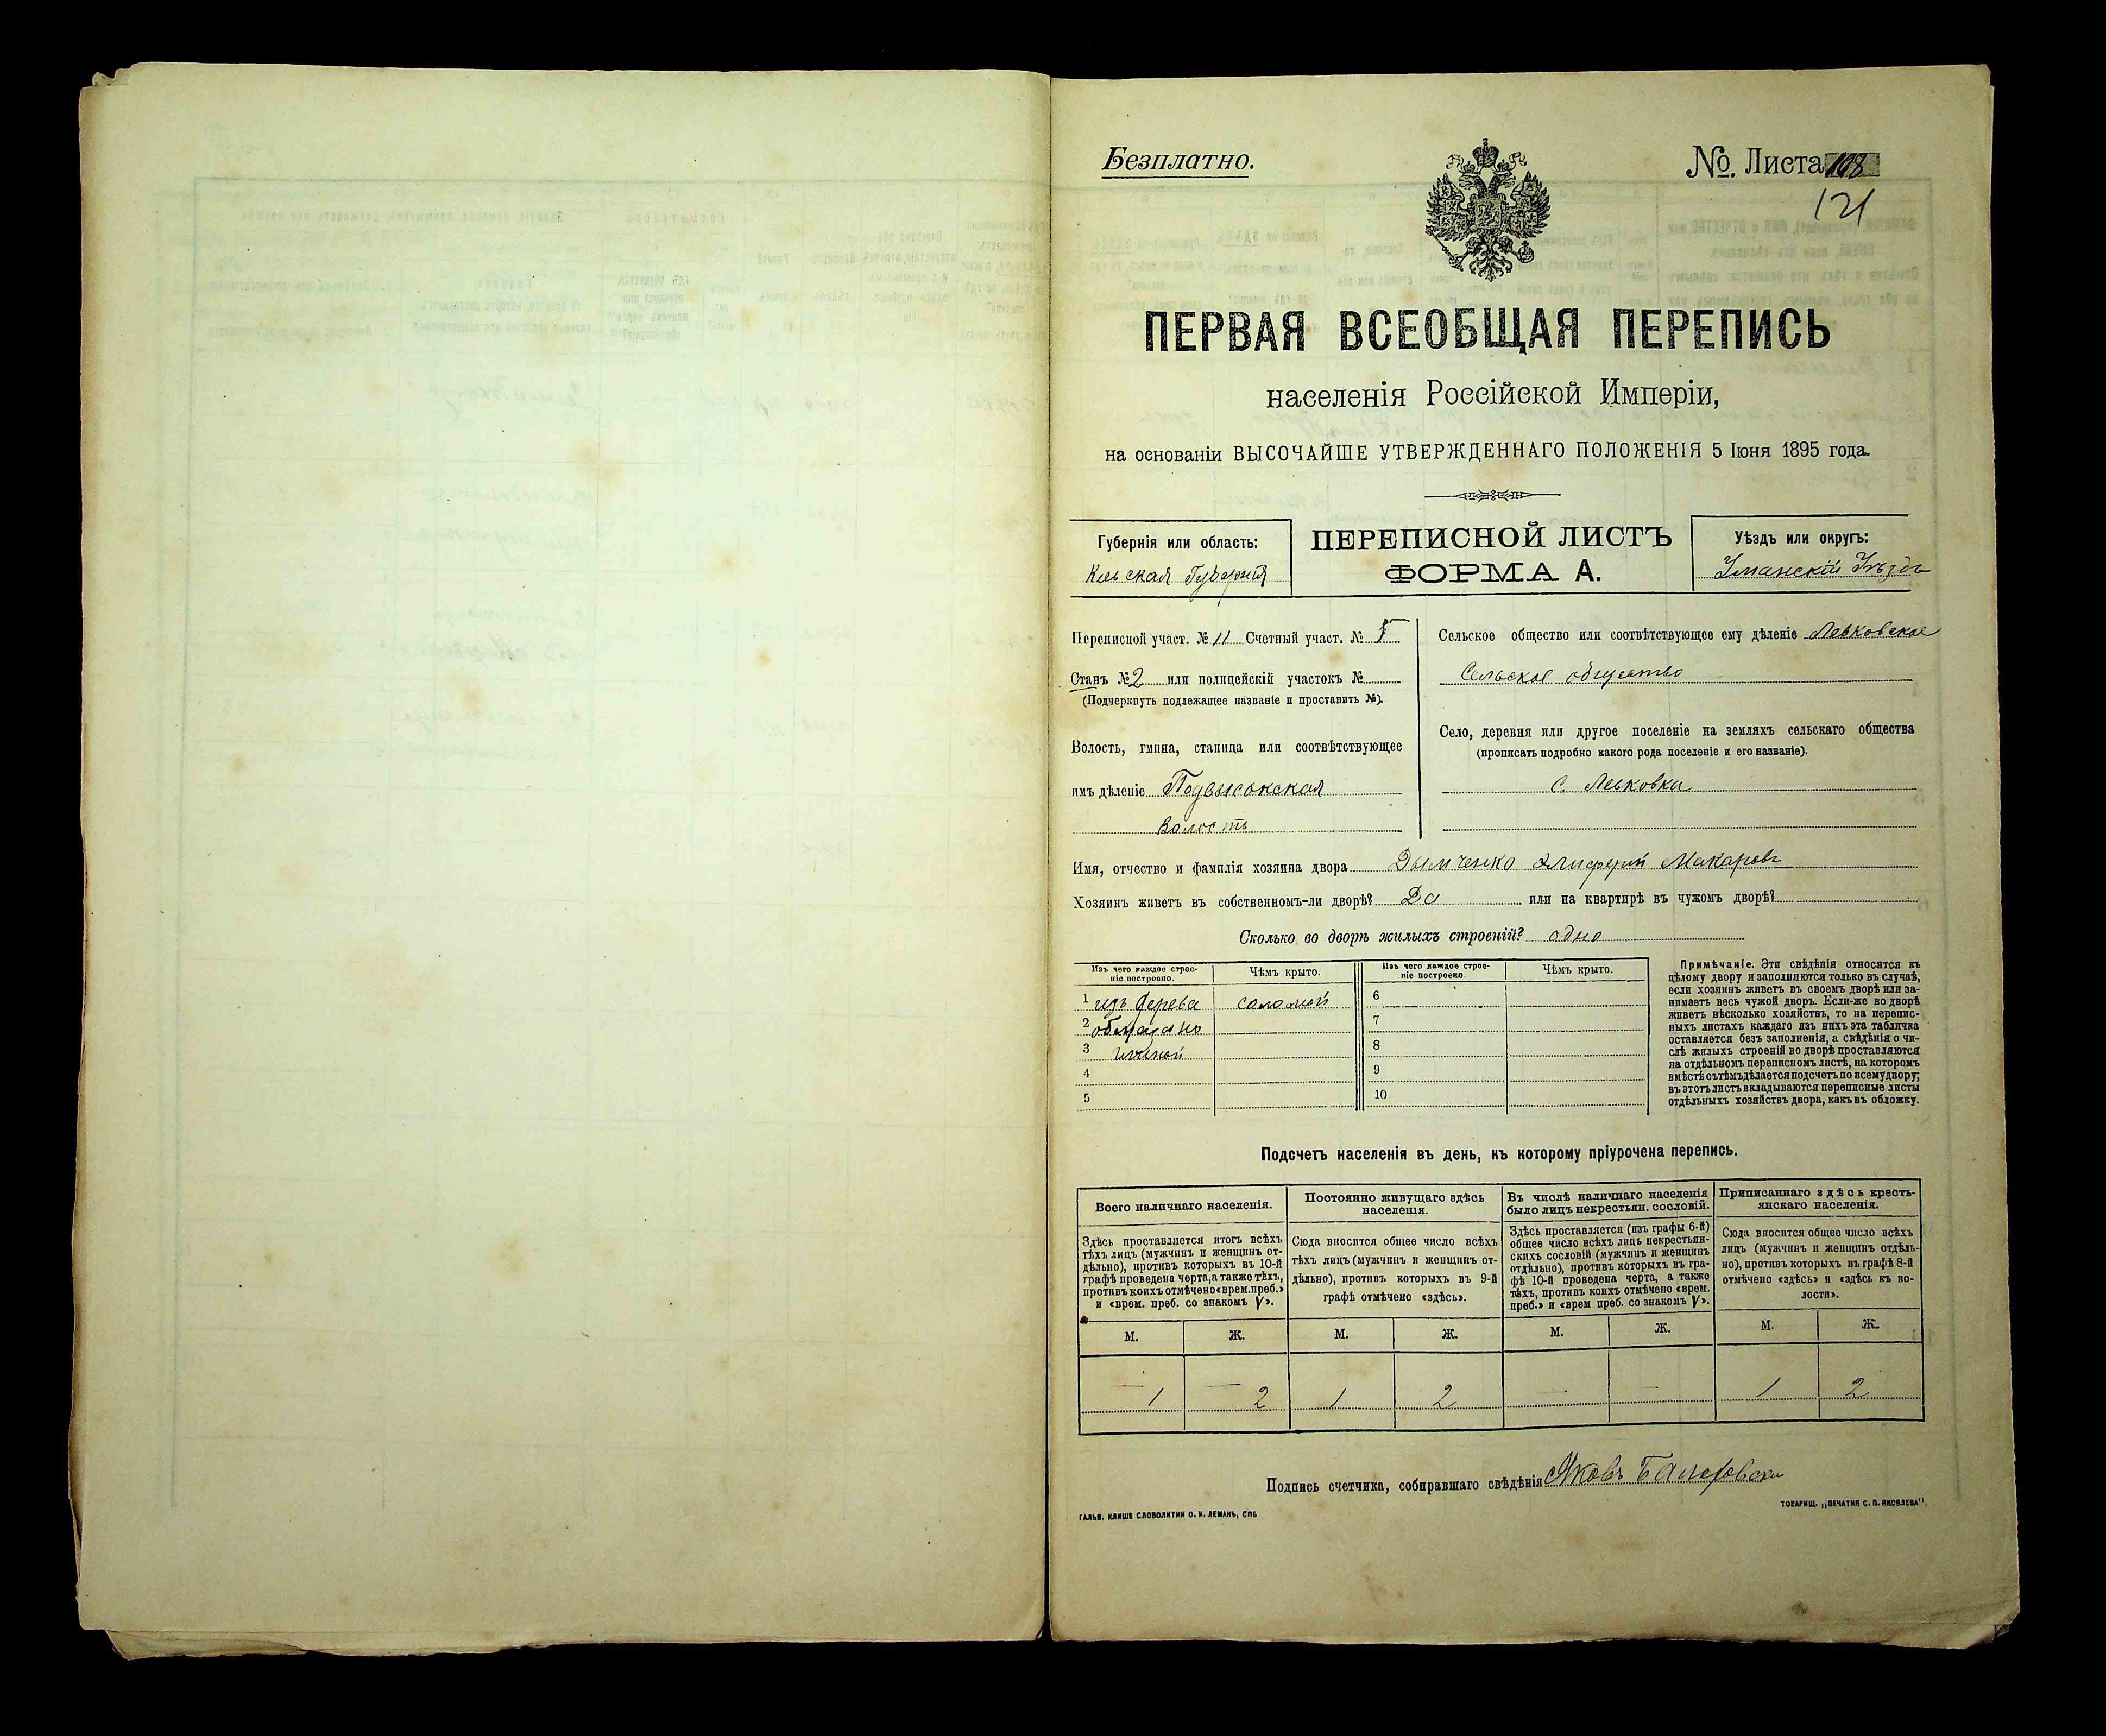 Безплатно.
№ Листа 108
121
ПЕРВАЯ ВСЕОБЩАЯ ПЕРЕПИСЬ
населенія Россійской Имперіи,
на основаніи ВЫСОЧАЙШЕ УТВЕРЖДЕННАГО ПОЛОЖЕНІЯ 5 Іюня 1895 года.
Губернія или область:
Кіевская Губернія
ПЕРЕПИСНОЙ ЛИСТЪ
ФОРМА А.
Уѣздъ или округъ:
Уманскій Уѣздъ
Переписной участ. № 11 Счетный участ. №
Станъ № 2 или полицейскій участокъ №
(Подчеркнуть подлежащее названіе и проставить №).
Волость, гмина, станица или соотвѣтствующее
имъ дѣленіе Подвысокская
волость
Сельское общество или соотвѣтствующее ему дѣленіе Левковское
Сельское общество
Село, деревня или другое поселеніе на земляхъ сельскаго общества
(прописать подробно какого рода поселеніе и его названіе).
С. Левковка
Имя, отчество и фамилія хозяина двора Дымченко Алиферій Макаровъ
Хозяинъ живетъ въ собственномъ-ли дворѣ? Да или на квартирѣ въ чужомъ дворѣ?
Сколько во дворѣ жилыхъ строеній? одно
Изъ чего каждое строе-
ніе построено.
Чѣмъ крыто.
Изъ чего каждое строе-
ніе построено.
Чѣмъ крыто.
1 изъ дерева соломой 6
2 обмазано 7
3 глиной 8
4 9
5 10
Примѣчаніе. Эти свѣдѣнія относятся къ
цѣлому двору и заполняются только въ случаѣ,
если хозяинъ живетъ въ своемъ дворѣ или за-
нимаетъ весь чужой дворъ. Если-же во дворѣ
живетъ нѣсколько хозяйствъ, то на перепис-
ныхъ листахъ каждаго изъ нихъ эта табличка
оставляется безъ заполненія, а свѣдѣнія о чи-
слѣ жилыхъ строеній во дворѣ проставляются
на отдѣльномъ переписномъ листѣ, на которомъ
вмѣстѣ съ тѣмъ дѣлается подсчетъ по всему двору;
въ этотъ листъ вкладываются переписные листы
отдѣльныхъ хозяйствъ двора, какъ въ обложку.
Подсчетъ населенія въ день, къ которому пріурочена перепись.
Всего наличнаго населенія.
Здѣсь проставляется итогъ всѣхъ
тѣхъ лицъ (мужчинъ и женщинъ от-
дѣльно), противъ которыхъ въ 10-й
графѣ проведена черта, а также тѣхъ,
противъ коихъ отмѣчено «врем. преб.»
и «врем. преб. со знакомъ V».
Постоянно живущаго здѣсь
населенія.
Сюда вносится общее число всѣхъ
тѣхъ лицъ (мужчинъ и женщинъ от-
дѣльно), противъ которыхъ въ 9-й
графѣ отмѣчено «здѣсь».
Въ числѣ наличнаго населенія
было лицъ некрестьян. сословій.
Здѣсь проставляется (изъ графы 6-й)
общее число всѣхъ лицъ некрестьян-
скихъ сословій (мужчинъ и женщинъ
отдѣльно), противъ которыхъ въ гра-
фѣ 10-й проведена черта, а также
тѣхъ, противъ коихъ отмѣчено «врем.
преб.» и «врем преб. со знакомъ V».
Приписаннаго здѣсь кресть-
янскаго населенія.
Сюда вносится общее число всѣхъ
лицъ (мужчинъ и женщинъ отдѣль-
но), противъ которыхъ въ графѣ 8-й
отмѣчено «здѣсь» и «здѣсь къ во-
лости».
М. Ж. М. Ж. М. Ж. М. Ж.
— 1 — 2 1 2 — — 1 2
Подпись счетчика, собиравшаго свѣдѣнія Яковъ
ГАЛЬВ. КЛИШЕ СЛОВОЛИТНИ О. И. ЛЕМАНЪ, СПБ
ТОВАРИЩ. „ПЕЧАТНЯ С. П. ЯКОВЛЕВА".